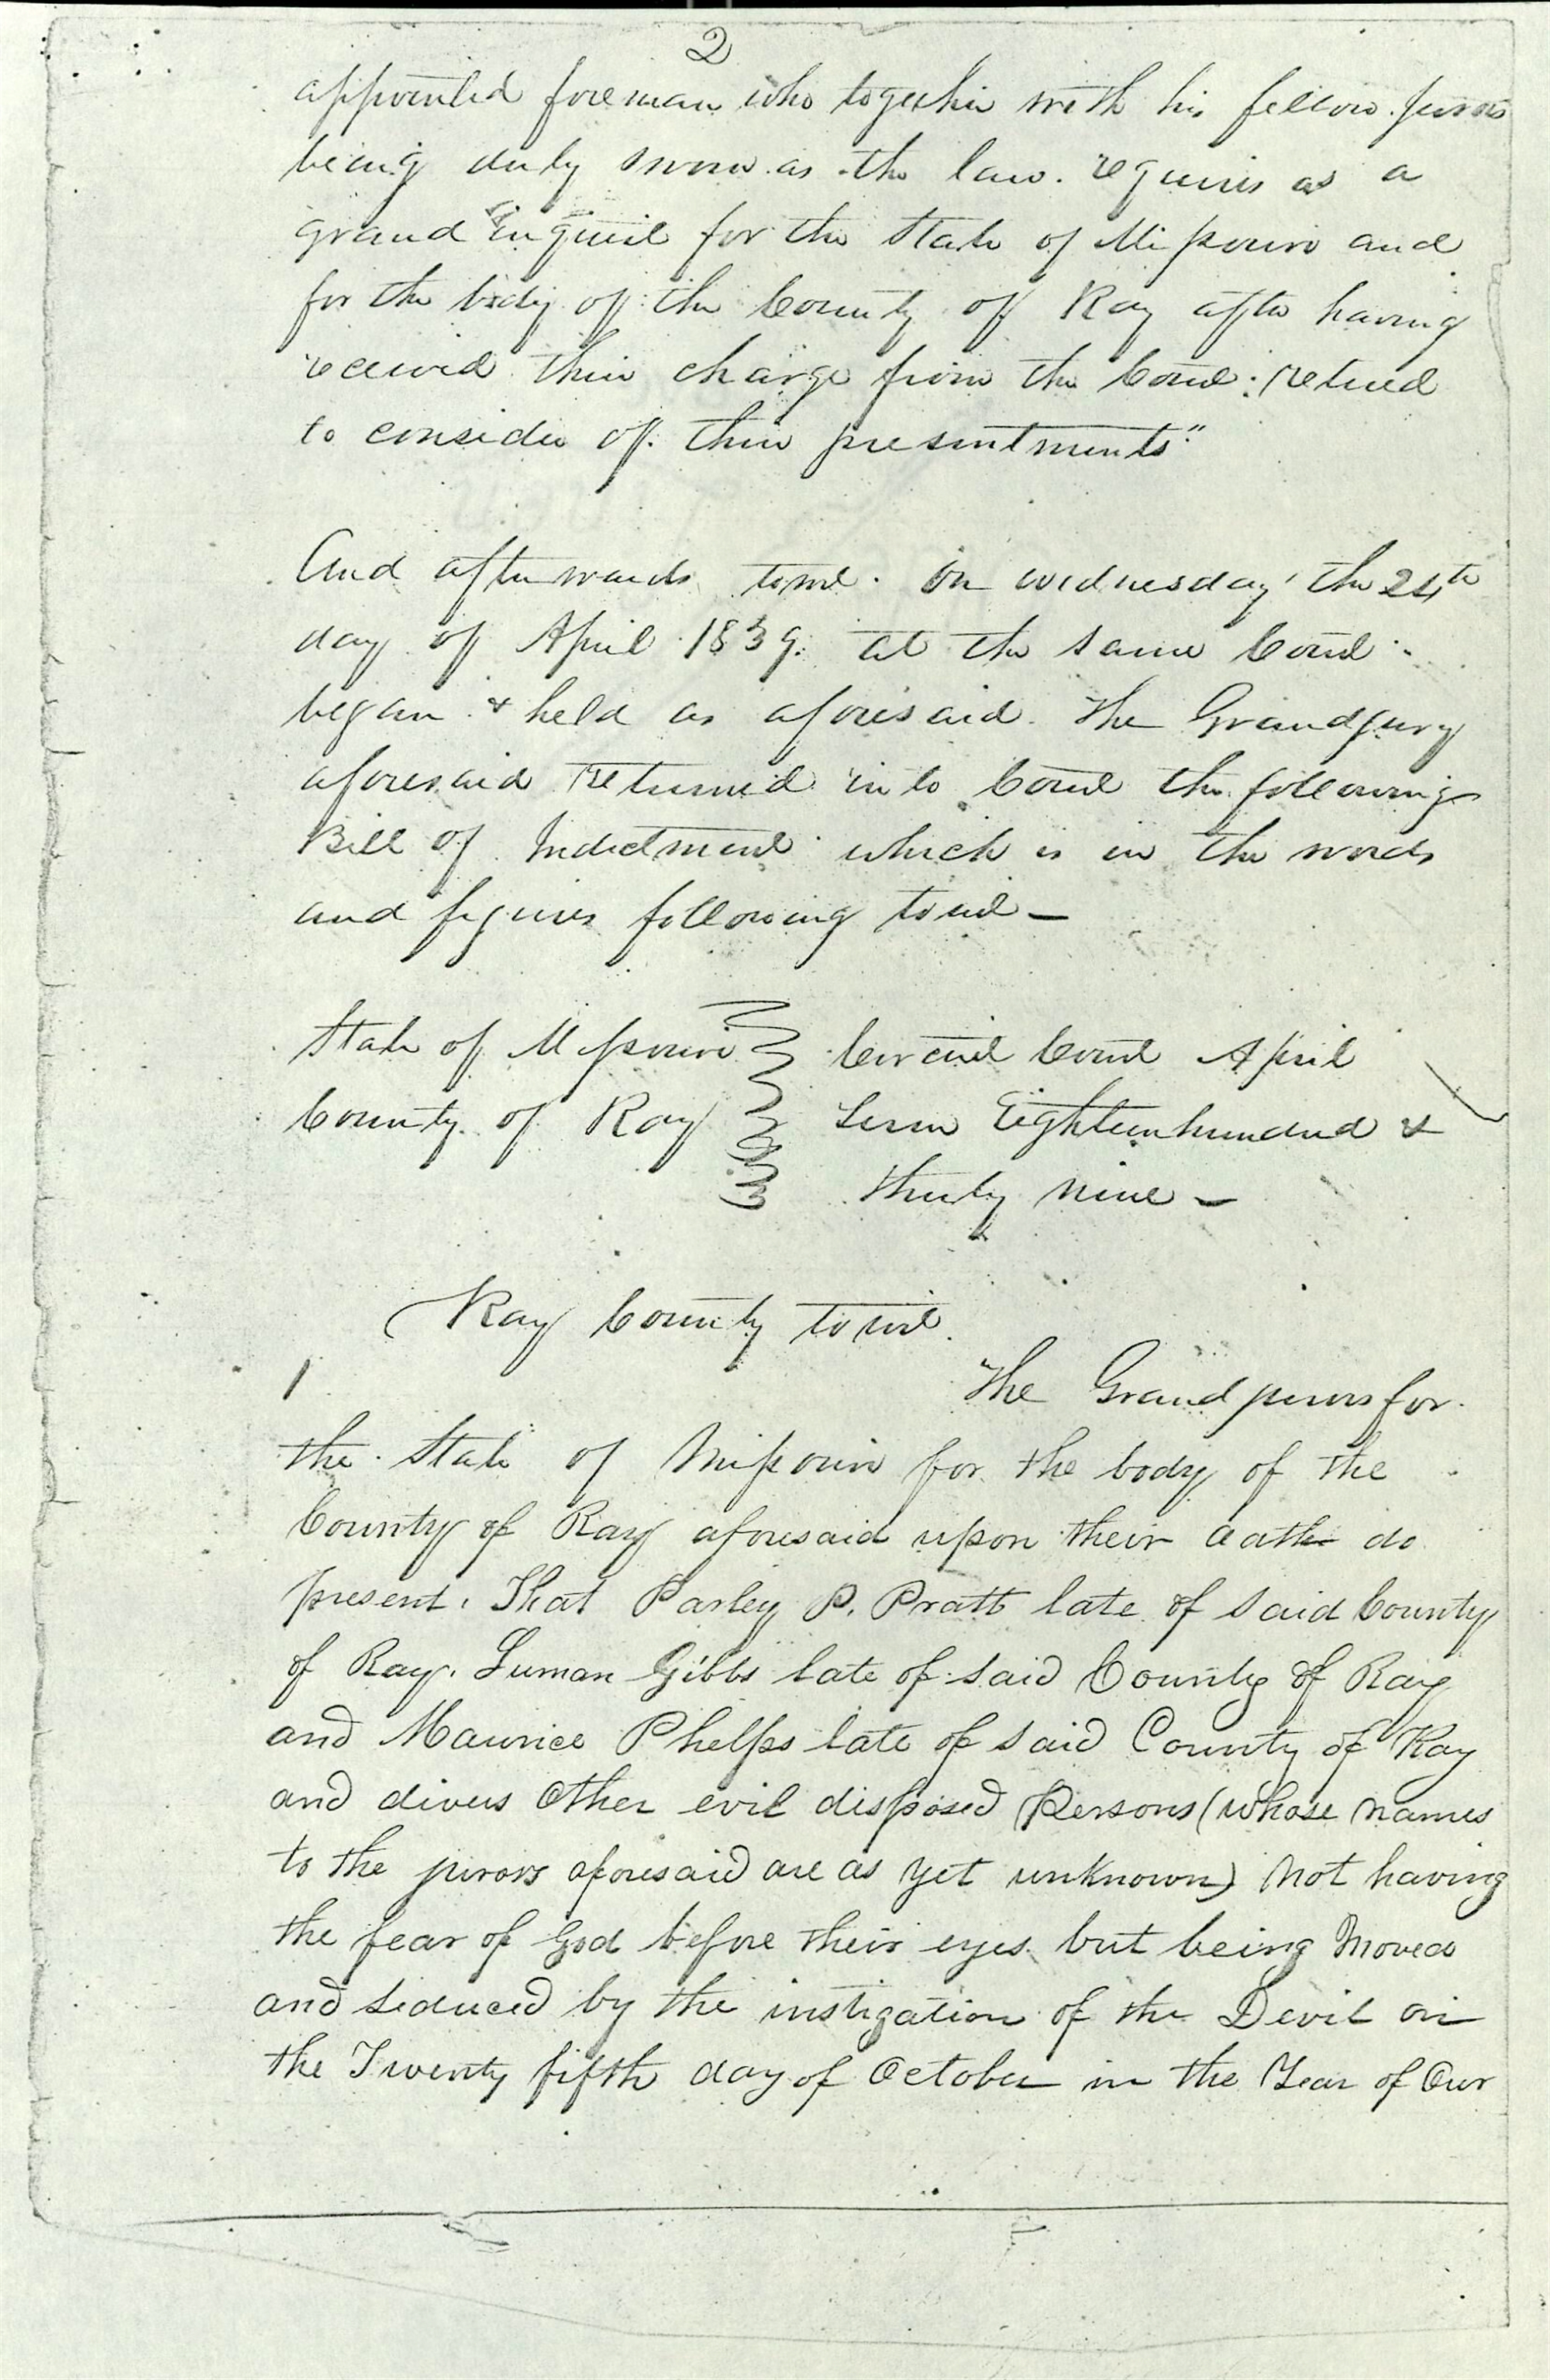 2
appointed foreman who together with his fellow jurors
being duly sworn as the law requires as a
grand inquest for the State of Missouri and
for the body of the County of Ray after having
received their charge from the Court retired
to consider of their presentments"
And afterwards towit. on wednesday the 24th
day of April 1839. at the same Court
began & held as aforesaid. The Grand jury
aforesaid returned into Court the following
Bill of Indictment which is in the words
and figures following towit —
State of Missouri Circuit Court April
County of Ray Term Eighteenhundred &
thirty nine —
Ray County towit.
1 The Grand jurors for
the State of Missouri for the body of the
County of Ray aforesaid upon their oath do
present. That Parley P. Pratt late of said County
of Ray. Luman Gibbs late of said County of Ray
and Maurice Phelps late of said County of Ray
and divers Other evil disposed Persons (whose names
to the jurors aforesaid are as yet unknown) Not having
the fear of God before their eyes but being Moved
and seduced by the instigation of the Devil on
the Twenty fifth day of October in the Year of Our